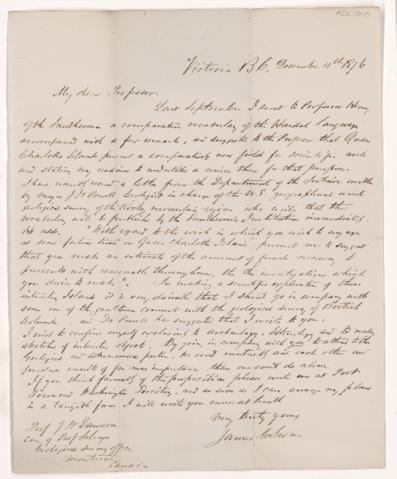 Victoria B.C. December 11th 1876
My dear Professor
Last September I sent to Professor Henry
of the Smithsonian a comparative vocabulary of the Haidah language
accompanied with a few remarks, and suggested to the Professor that Queen
Charlotte Islands present a comparatively new field for scientific work
and stating my readiness to undertake a service there for that purpose.
I have received a letter from the Department of the Interior written
by Major J W Powell Geologist in charge of the U.S. geographical and
geological survey of the Rocky mountain region, who writes that the
vocabulary will be published by the Smithsonian Institution immediately.
He adds. "With regard to the work in which you wish to engage
at some future time on Queen Charlotte Islands permit me to suggest
that you make an estimate of the amount of funds necessary to
prosecute with reasonable thoroughness, the investigations which
you desire to make". In making a scientific exploration of these
Islands it is very desirable that I should go in company with
some one of the gentlemen connected with the geological survey of British
Columbia, and suggests that I write to you.
I wish to confine myself exclusively to archaeology, Ethnology and to making
sketches of interesting objects. By going in company with you to attend to the
Geological and portion. We could mutually aid each other and
produce results of far more importance than one could do alone.
If you think favorably of this proposition please write me at Port
Townsend Washington Territory, and as soon as I can arrange my plans
in a tangible form I will write you more at length
Very truly yours
James G Swan
Prof J W Dawson
Care of Prof Selwyn
Geological Survey office
Montreal
Canada